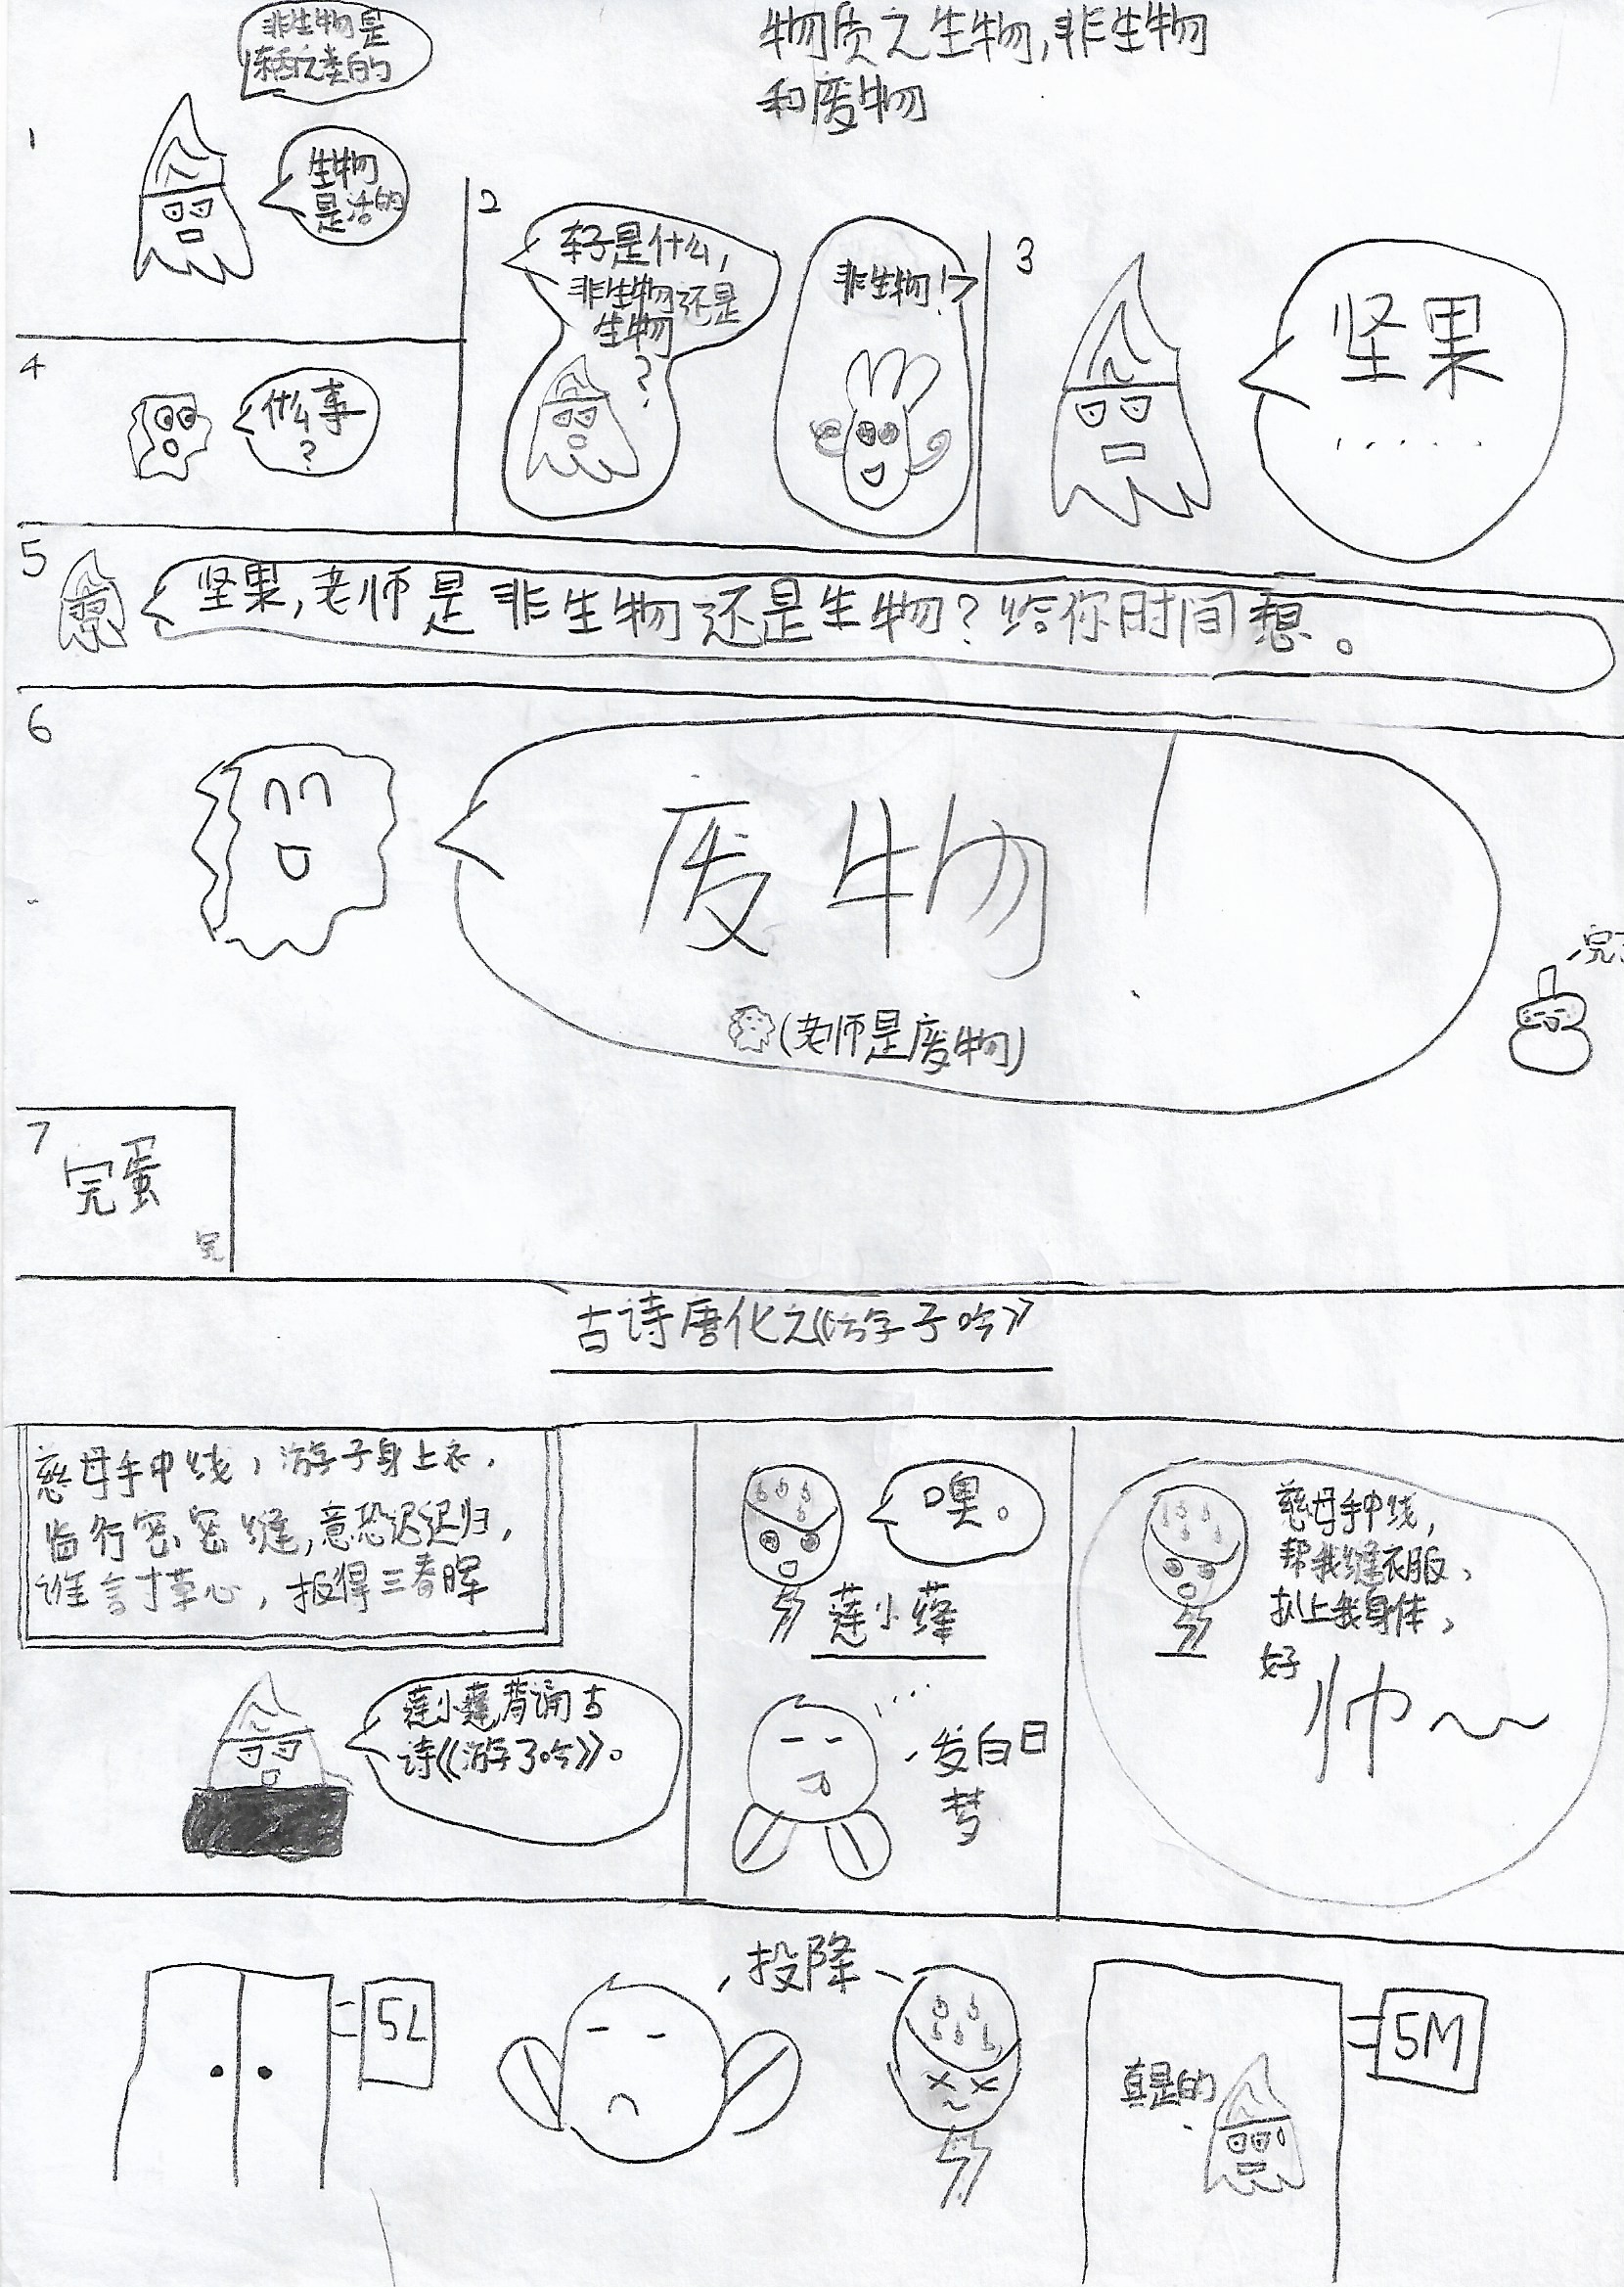 物质之生物,非生物
和废物
1
非生物是
东西之类的
生物
是活的
2
车子是什么,
非生物还是
生物
?
非生物!
3
坚果
......
4
什么事
?
5
坚果,老师是非生物还是生物?给你时间想。
6
废物!
(老师是废物)
完了
7
完蛋
完
古诗唐化之《游子吟》
慈母手中线,游子身上衣,
临行密密缝,意恐迟迟归,
谁言寸草心,报得三春晖
莲小蕯背诵古
诗《游子吟》。
噢。
莲小蕯
....
发白日
梦
慈母手中线,
帮我缝衣服,
扒上我身体,
好
帅~~
5L
投降
真是的
5M